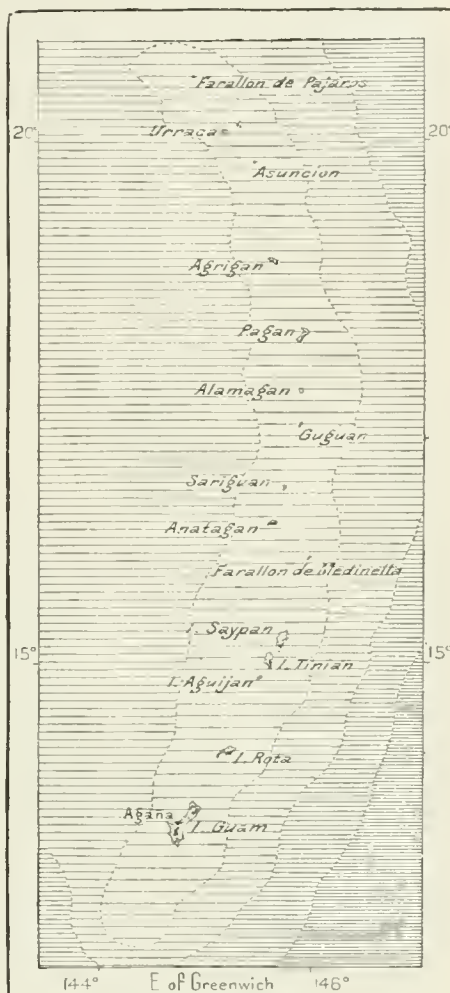 Farallon de Pajaros
20° 20°
Urraca
Asuncion
Agrigan
Pagan
Alamagan
Guguan
Sariguan
Anatagan
Farallon de Medinella
I. Saypan
15° 15°
I. Tinian
I. Aguijan
I. Rota
Agaña
I. Guam
144° E of Greenwich 146°